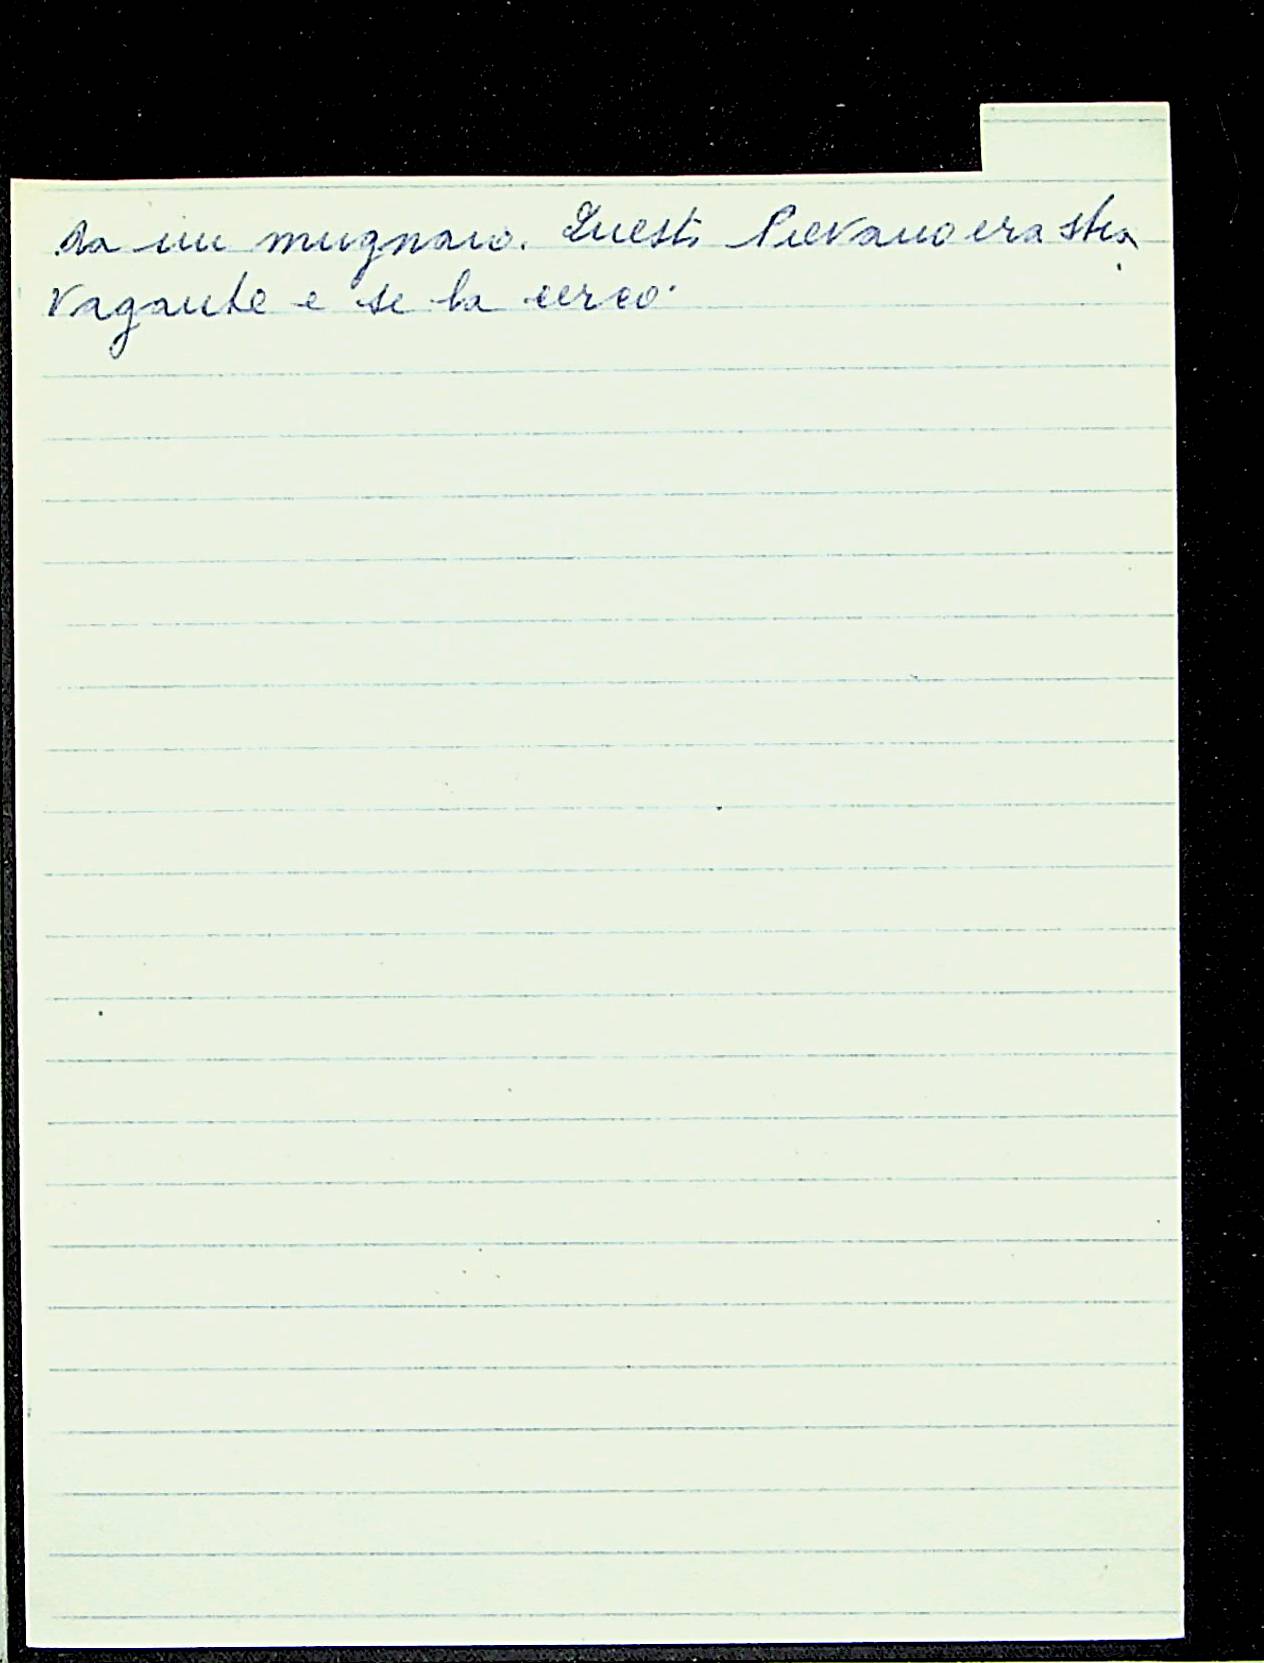 da un mugnaio. Questi Pievano era stra
vagante e se la cercò.